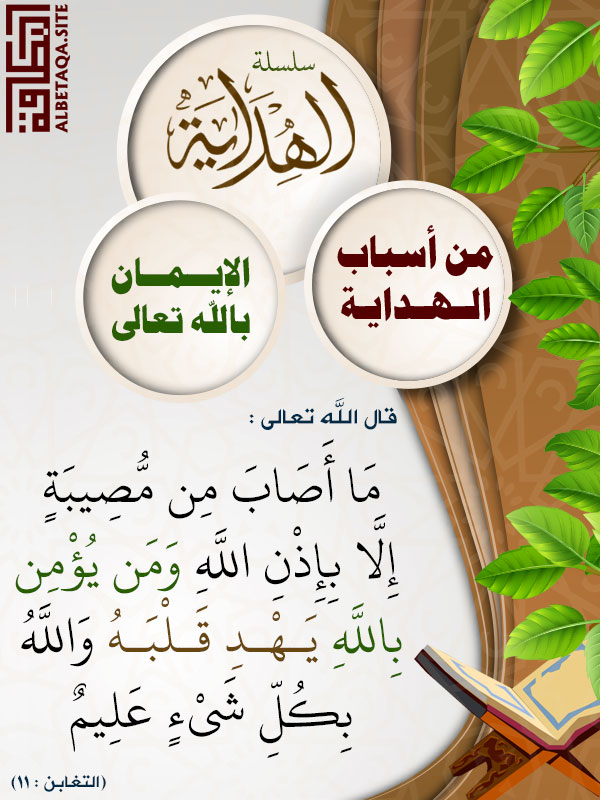 البطاقة
ALBETAQA.SITE
سلسلة
الهداية
من أسباب
الهداية
الإيمان
بالله تعالى
قال الله تعالى :
مَا أَصَابَ مِن مُّصِيبَةٍ
إِلَّا بِإِذْنِ اللَّهِ وَمَن يُؤْمِن
بِاللَّهِ يَهْدِ قَلْبَهُ وَاللَّهُ
بِكُلِّ شَيْءٍ عَلِيمٌ
(التغابن : ١١)